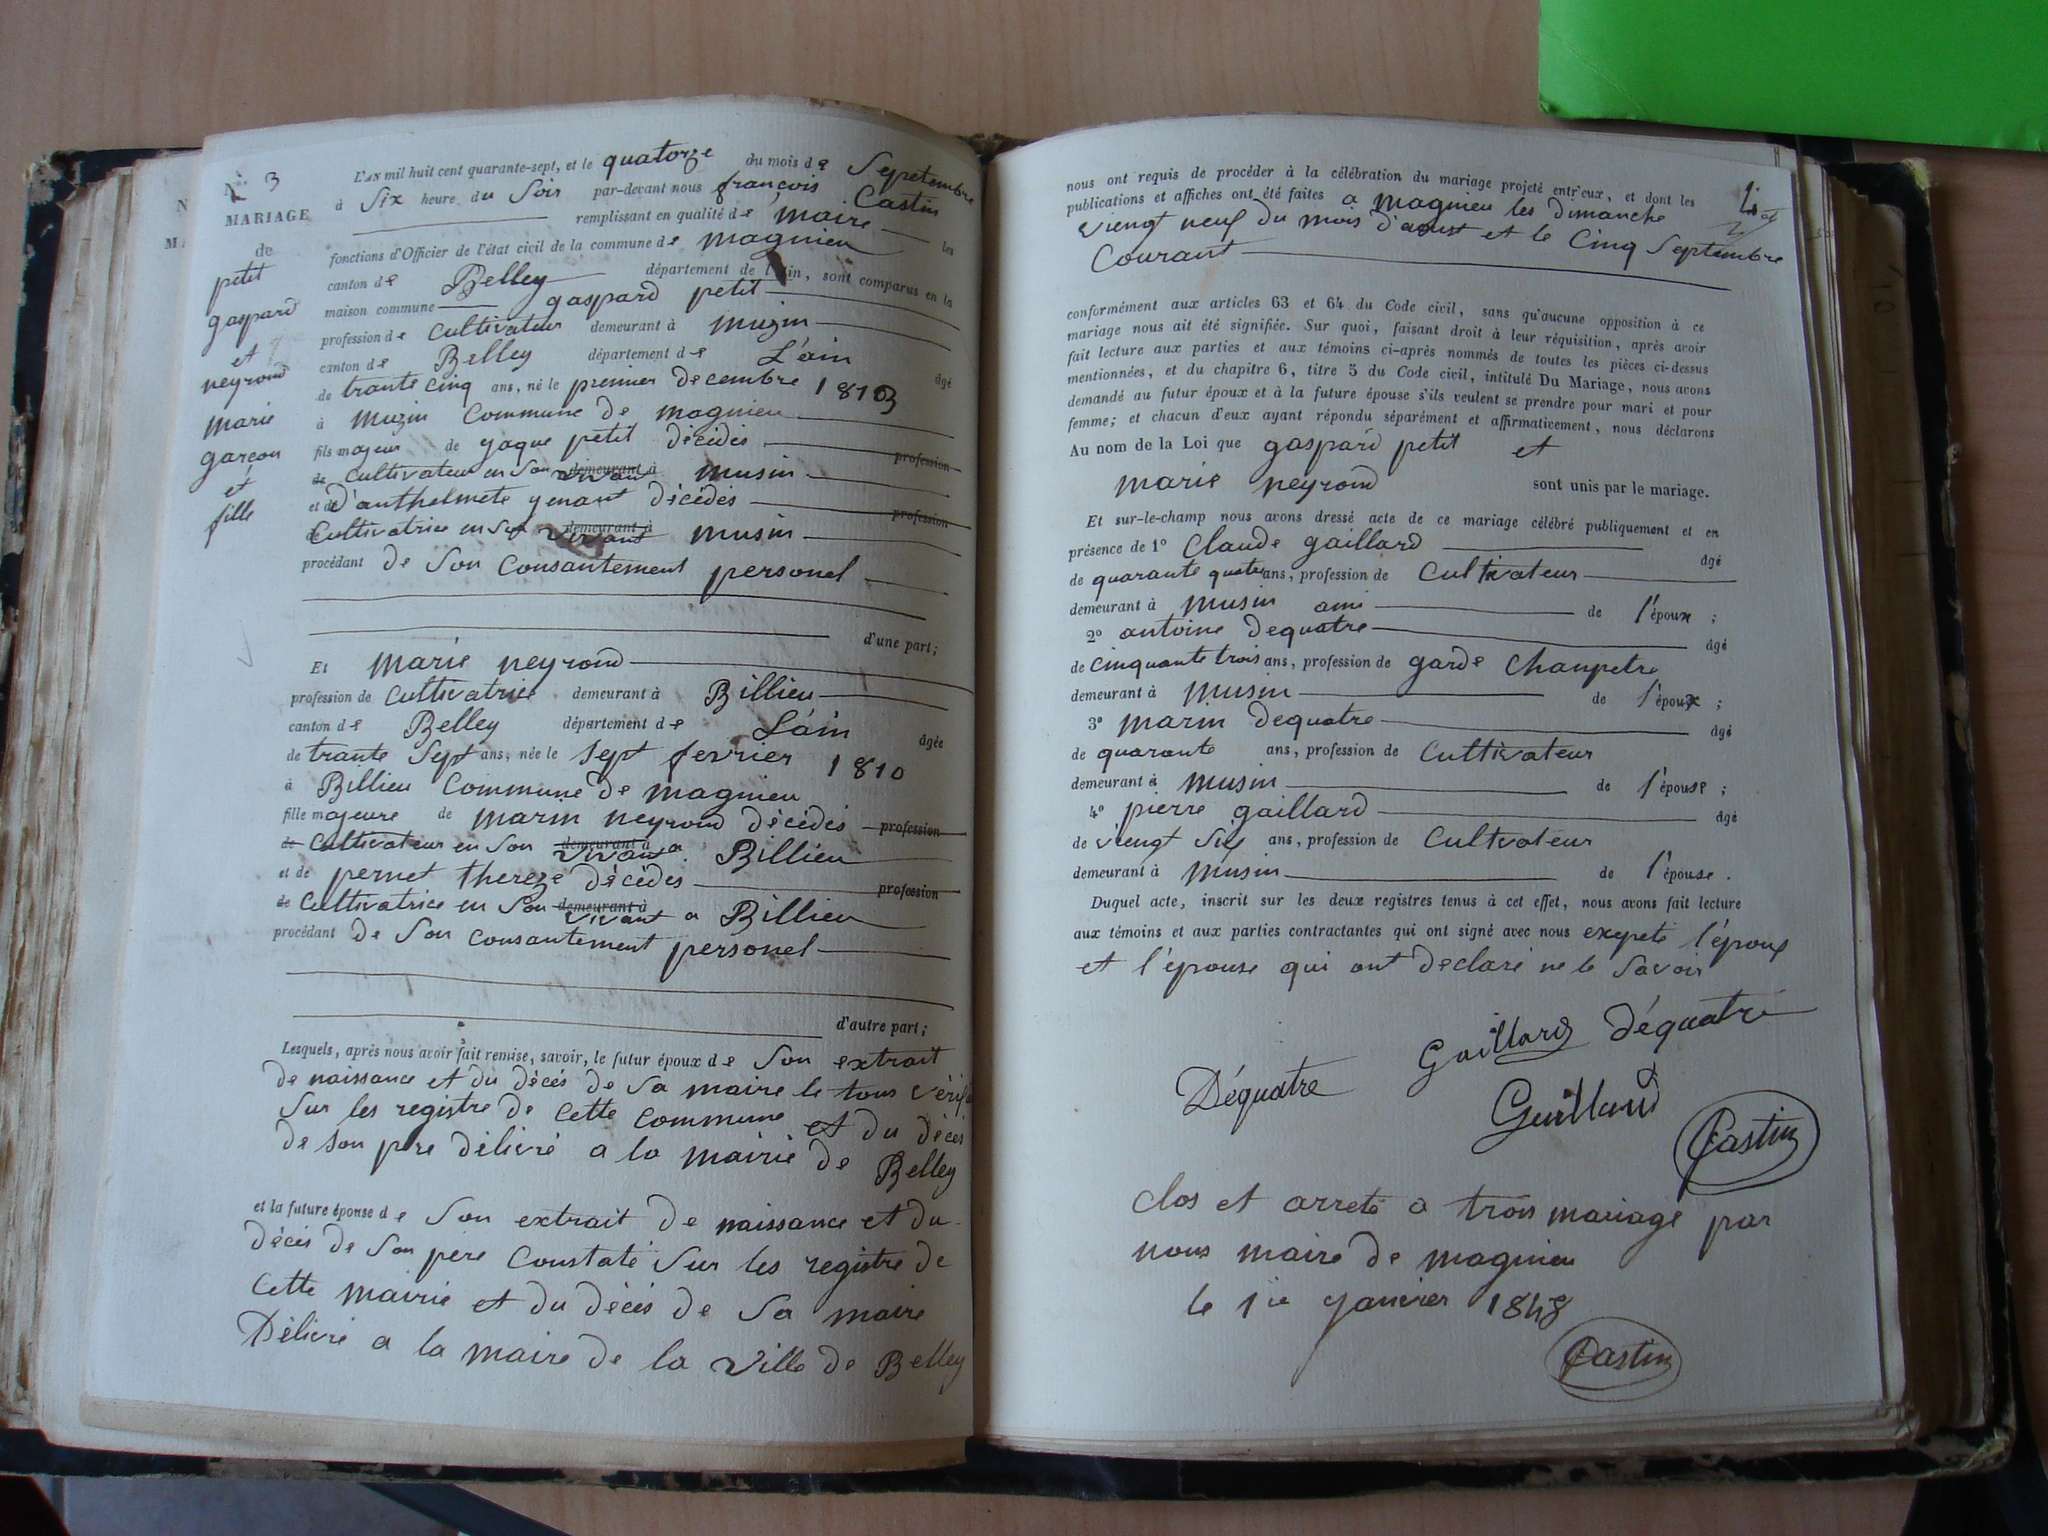 N° 3
MARIAGE
de
petit
gaspard
et
neyroud
marie
garcon
et
fille
L'AN mil huit cent quarante-sept, et le quatorze du mois de Sepetembre
à Six heure du Soir par-devant nous françois Castin
remplissant en qualité de maire les
fonctions d'Officier de l'état civil de la commune de magnieu
canton de Belley département de l'Ain, sont comparus en la
maison commune gaspard petit
profession de cultivateur demeurant à muzin
canton de Belley département de L'ain âgé
de trante cinq ans, né le premier decembre 1813
à muzin Commune de magnieu
fils majeur de yaque petit décédés profession
de cultivateur en son demeurant à vivant musin
et de d'anthelmete yenant décédés profession
Cultivatrice en son demeurant à vivant musin
procédant de Son Consantement personel
d'une part;
Et marie neyroud
profession de cultivatrice demeurant à Billieu
canton de Belley département de L'ain âgée
de trante Sept ans, née le sept fevrier 1810
à Billieu Commune de magnieu
fille majeure de marin neyroud décédés profession
de Cultivateur en Son demeurant à vivant a Billieu
et de pernet thereze décédés profession
de Cultivatrice en Son demeurant à vivant a Billieu
procédant de Son consantement personel
d'autre part;
Lesquels, après nous avoir fait remise, savoir, le futur époux de Son extrait
de naissance et du décés de Sa maire le tous vérif
Sur les registre de Cette Commune et du déces
de son pere délivré a la mairie de Belley
et la future épouse de Son extrait de naissance et du
décés de Son pere Constaté Sur les registre de
Cette mairie et du décés de Sa maire
Délivré a la maire de la ville de Belley
nous ont requis de procéder à la célébration du mariage projeté entr'eux, et dont les
publications et affiches ont été faites a magnieu les dimanche
viengt neuf du mois d'aoust et le Cinq Septembre
Courant
conformément aux articles 63 et 64 du Code civil, sans qu'aucune opposition à ce
mariage nous ait été signifiée. Sur quoi, faisant droit à leur réquisition, après avoir
fait lecture aux parties et aux témoins ci-après nommés de toutes les pièces ci-dessus
mentionnées, et du chapitre 6, titre 5 du Code civil, intitulé Du Mariage, nous avons
demandé au futur époux et à la future épouse s'ils veulent se prendre pour mari et pour
femme; et chacun d'eux ayant répondu séparément et affirmativement, nous déclarons
Au nom de la Loi que gaspard petit et
marie neyroud sont unis par le mariage.
Et sur-le-champ nous avons dressé acte de ce mariage célébré publiquement et en
présence de 1° Claude gaillard âgé
de quarante quatre ans, profession de Cultivateur
demeurant à musin ami de l'époux ;
2° antoine dequatre âgé
de cinquante trois ans, profession de garde Chanpetre
demeurant à musin de l'époux ;
3° marin dequatre âgé
de quarante ans, profession de Cultivateur
demeurant à musin de l'épouse ;
4° pierre gaillard âgé
de viengt Six ans, profession de Cultvateur
demeurant à musin de l'épouse.
Duquel acte, inscrit sur les deux registres tenus à cet effet, nous avons fait lecture
aux témoins et aux parties contractantes qui ont signé avec nous exepeté l'époux
et l'épouse qui ont declaré ne le Savoir
Gaillard Déquatre
Déquatre
Guillaud
Castin
Clos et arreté a trois mariage par
nous maire de magnieu
le 1ie yanvier 1848
Castin